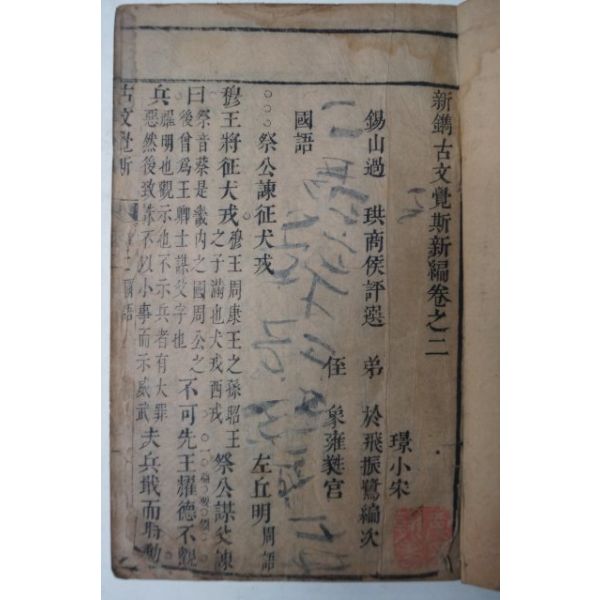 新鐫古文覺斯新編卷之二
璟小宋
錫山過珙商侯評選 弟於飛振鷺編次
侄象雍羙宮
國語
左丘明周語
祭公諫征犬戎
穆王將征犬戎穆王周康王之孫昭王之子滿也犬戎西戎祭公謀父諫
曰祭音蔡是畿內之國周公之後曾爲王卿士謀父字也不可先王耀德不觀
兵耀明也觀示也不示兵者有大罪惡然後致誅不以小事而示威武夫兵戢而時動
古文覺斯
國語